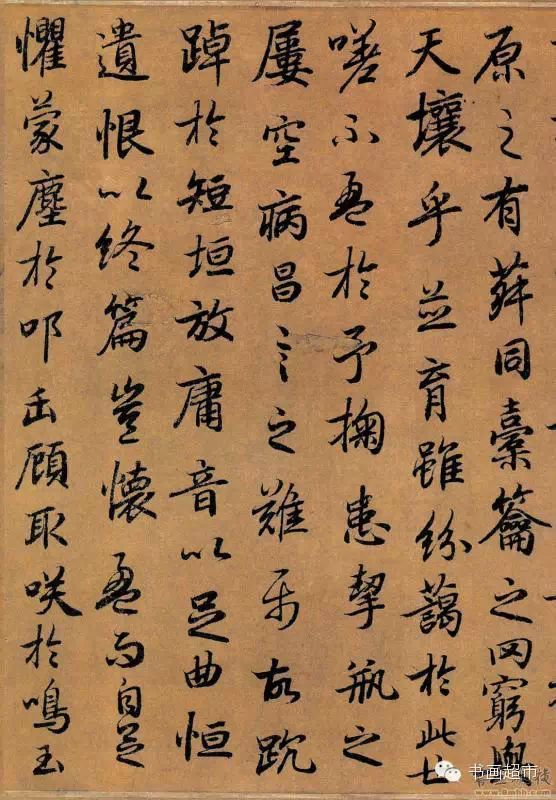 原之有菽同橐籥之罔窮與
天壤乎並育雖紛藹於此世
嗟不盈於予掬患挈瓶之
屢空病昌言之難屬故踸
踔於短垣放庸音以足曲恒
遺恨以終篇豈懷盈而自足
懼蒙塵於叩缶顧取咲於鳴玉
书画超市